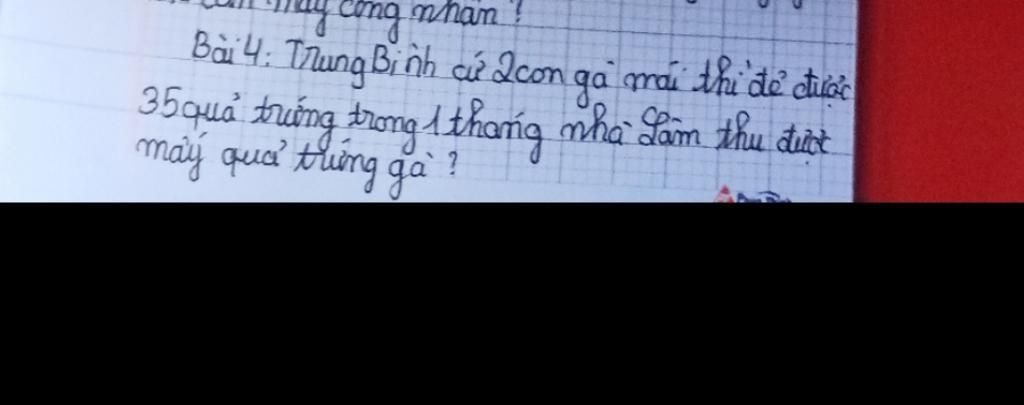 mấy công nhân?
Bài 4: Trung Bình cứ 2 con gà mái thì đẻ được
35 quả trứng trong 1 tháng nhà Lâm thu được
mấy quả trứng gà?